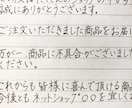 成にありがとうございます。
ご注文いただきました商品をお届
万が一 商品に不具合がございまし
ください。
これからも皆様に喜んで頂ける商
今後ともネットショップ〇〇を宜し